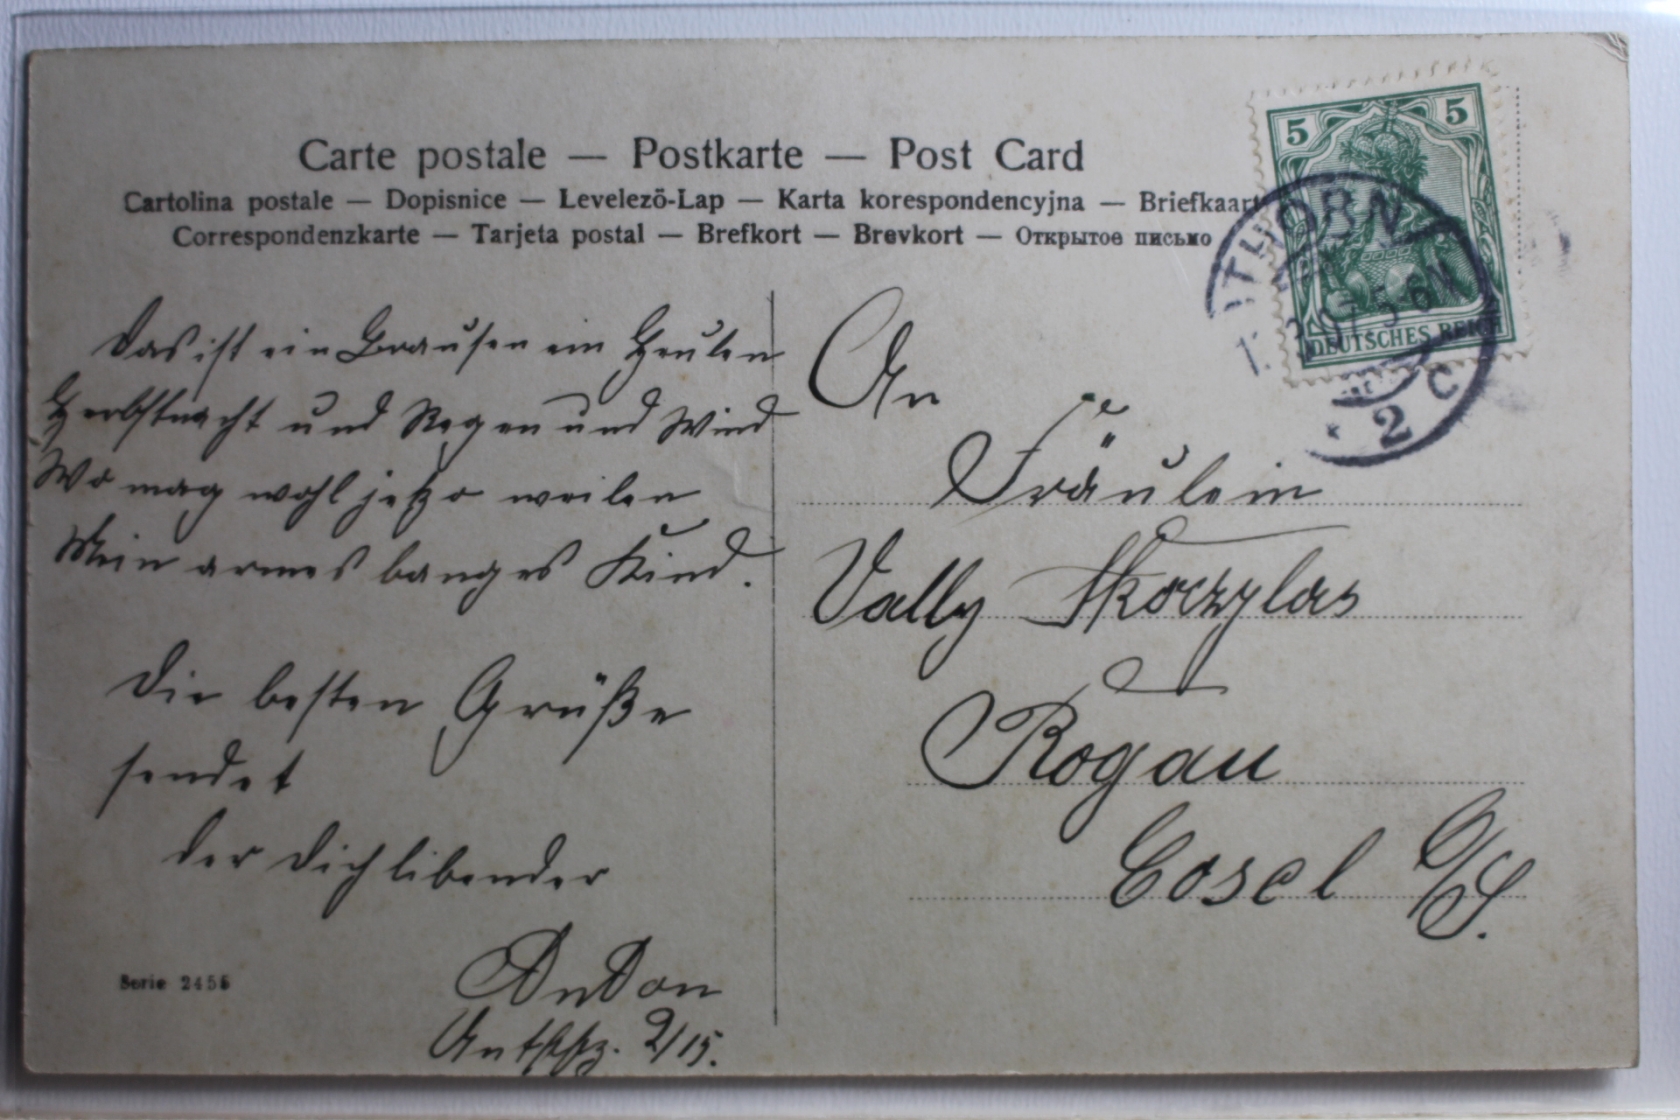 Carte postale — Postkarte — Post Card
Cartolina postale — Dopisnice — Levelező-Lap — Karta korespondencyjna — Briefkaart
Correspondenzkarte — Tarjeta postal — Brefkort — Brevkort — Открытое письмо
5 5
DEUTSCHES REICH
THORN
07 5-6 N
* 2 C
Das ist ein Brausen ein Heulen
Herbstnacht und Regen und Wind
Wo mag wohl jetzo weilen
Mein armes banges Kind.
Die besten Grüße
sendet
der dich libender
2/15.
Serie 2455
An
Fräulein
Vally Skoczylas
Rogau
Cosel O/S.